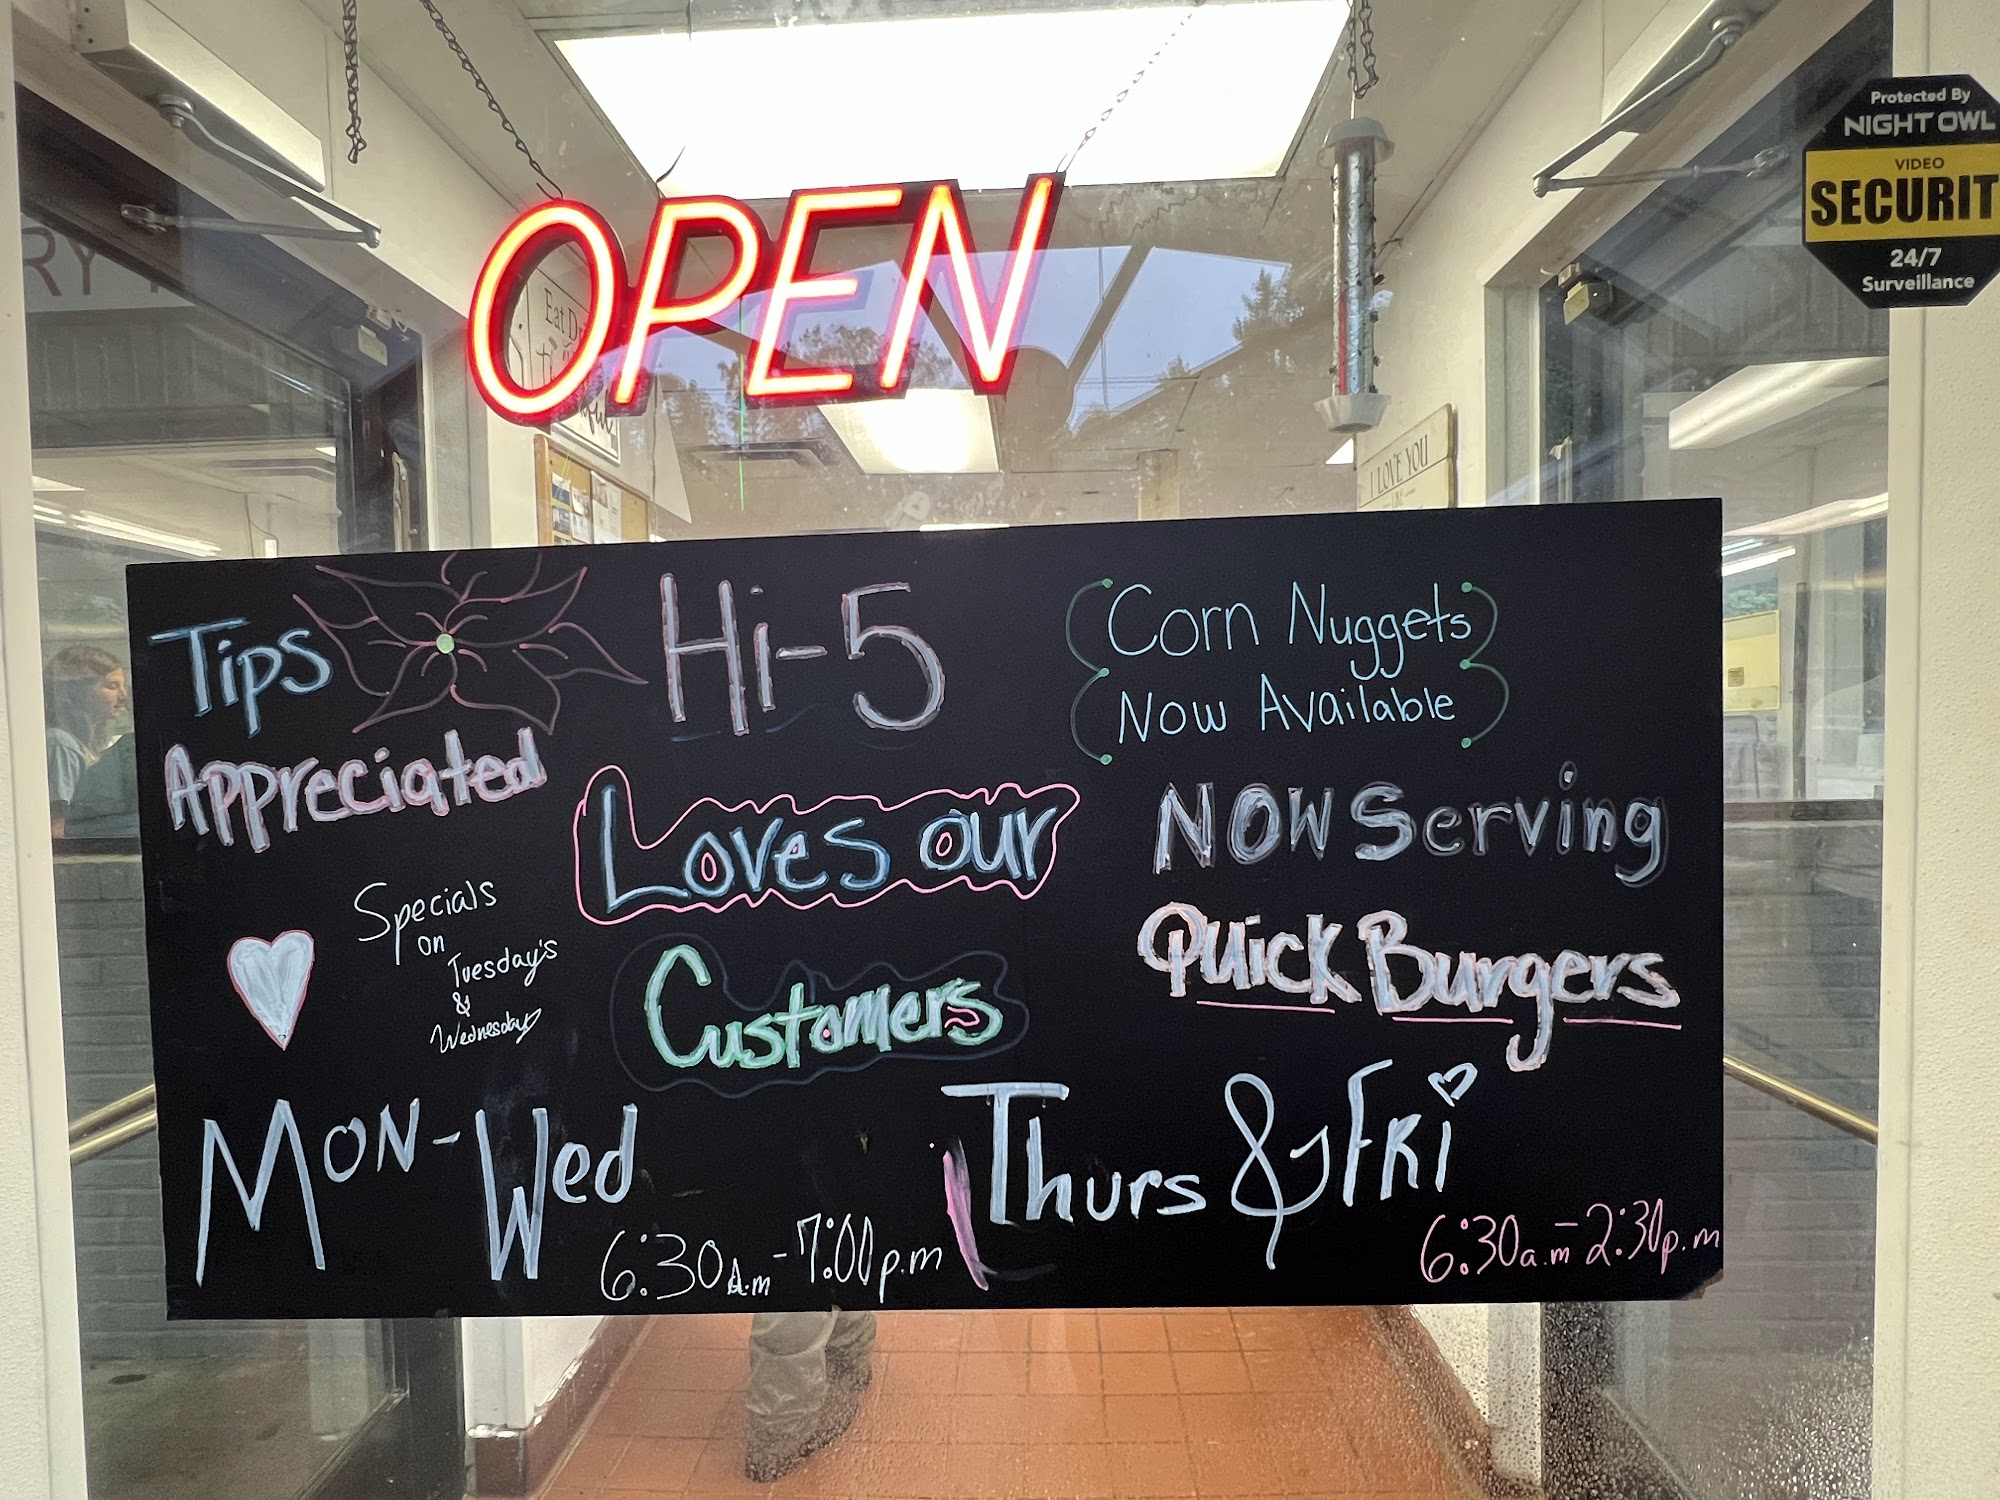 OPEN
Protected By
NIGHT OWL
VIDEO
SECURIT
24/7
Surveillance
RY
Eat
I LOVE YOU
Tips
Appreciated
Hi-5
Loves our
Customers
Corn Nuggets
Now Available
NOW Serving
Quick Burgers
Specials
on
Tuesday's
&
Wednesday
Mon-Wed
6:30a.m-7:00p.m
Thurs & FRi
6:30a.m-2:30p.m